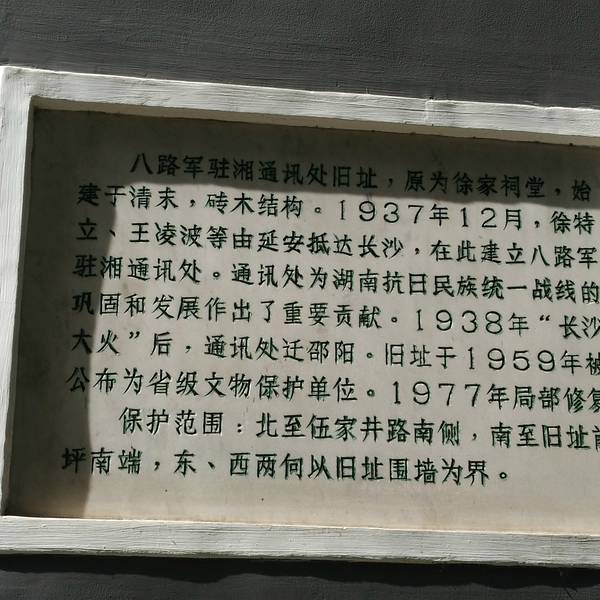 八路军驻湘通讯处旧址，原为徐家祠堂，始
建于清末，砖木结构。1937年12月，徐特
立、王凌波等由延安抵达长沙，在此建立八路军
驻湘通讯处。通讯处为湖南抗日民族统一战线的
巩固和发展作出了重要贡献。1938年“长沙
大火”后，通讯处迁邵阳。旧址于1959年被
公布为省级文物保护单位。1977年局部修复
保护范围：北至伍家井路南侧，南至旧址前
坪南端，东、西两向以旧址围墙为界。